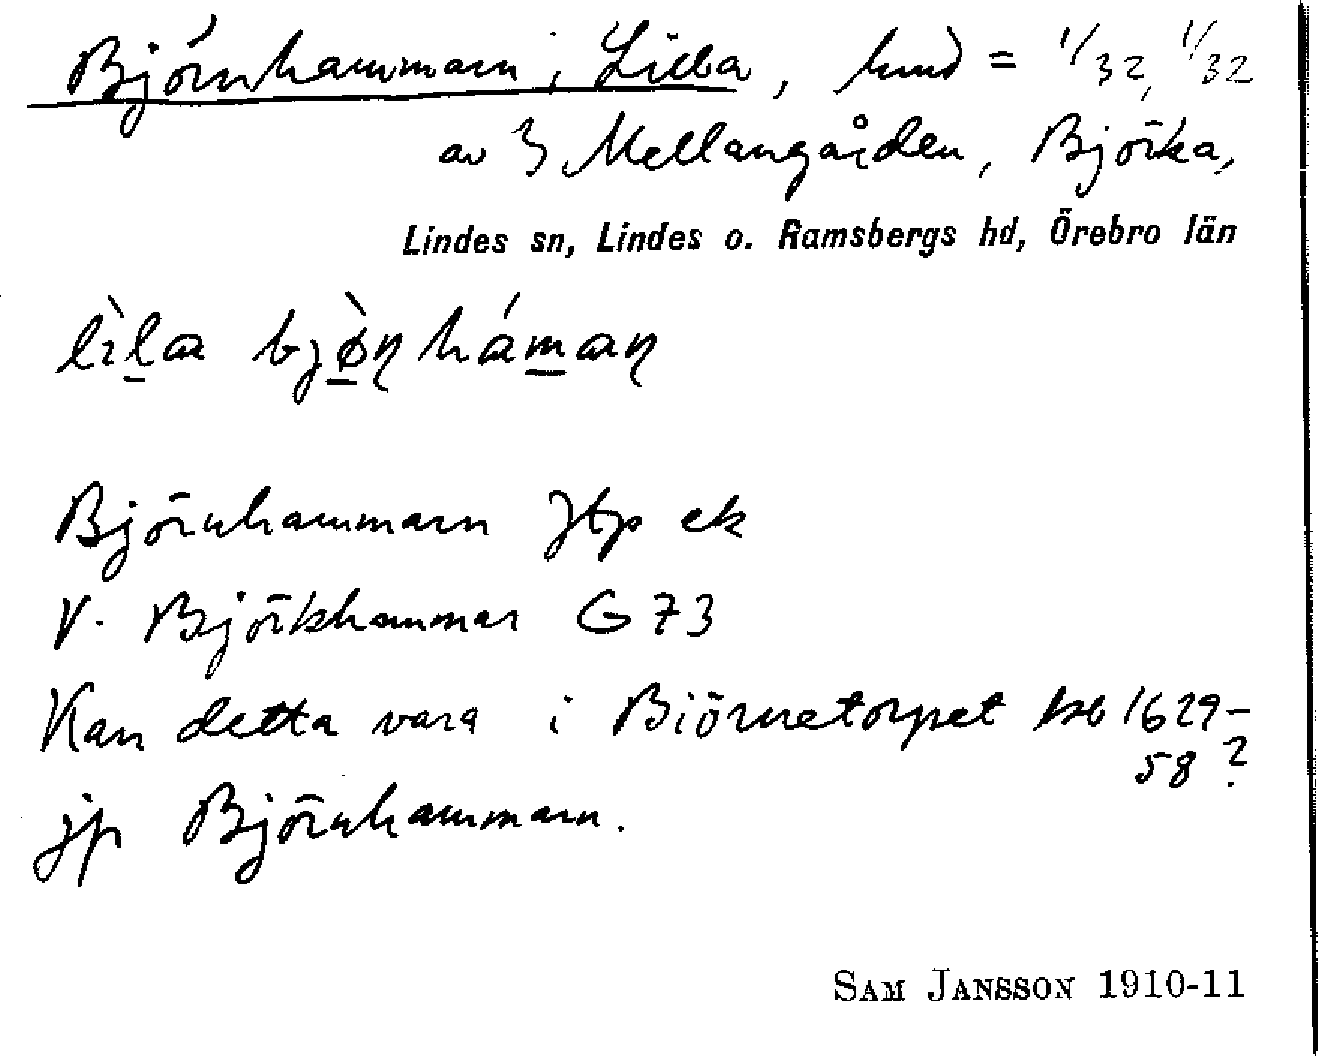 Björnhammarn, Lilla, hmd = 1/32, 1/32
av 3 Mellangården, Björka,
Lindes sn, Lindes o. Ramsbergs hd, Örebro län
lìla bjø̀ɳháman̨
Björnhammarn Jtp ek
V. Björkhammar G 73
Kan detta vara i Biörnetorpet hsb 1629-
58?
jfr Björnhammarn.
SAM JANSSON 1910-11